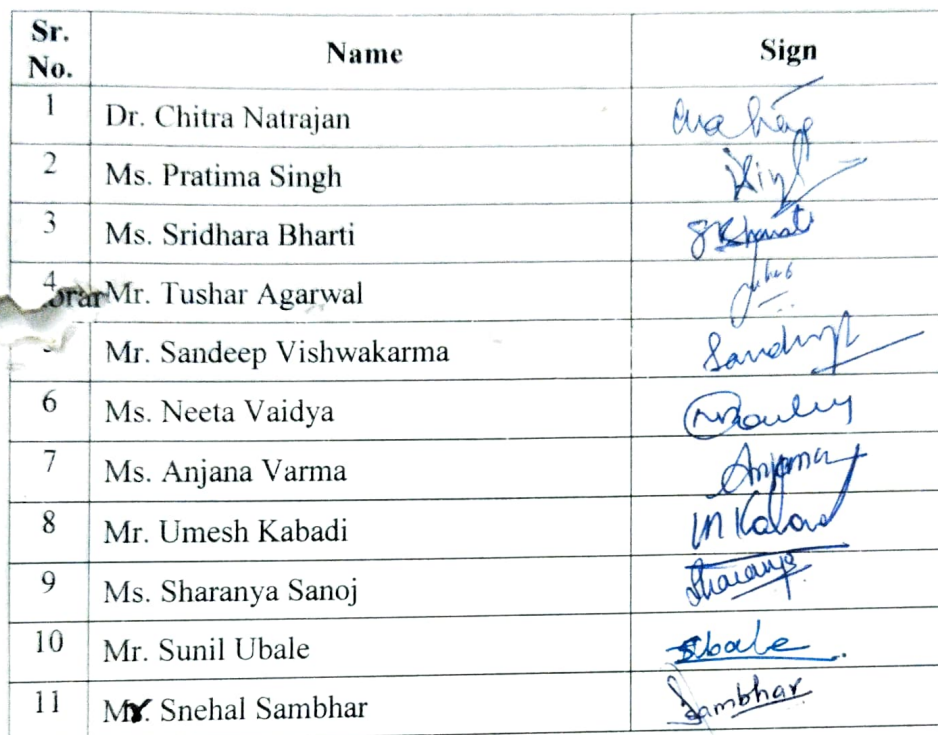 Sr. No. Name Sign
1 Dr. Chitra Natrajan
2 Ms. Pratima Singh
3 Ms. Sridhara Bharti
4 Mr. Tushar Agarwal
5 Mr. Sandeep Vishwakarma
6 Ms. Neeta Vaidya
7 Ms. Anjana Varma Anjana
8 Mr. Umesh Kabadi
9 Ms. Sharanya Sanoj Sharanya
10 Mr. Sunil Ubale Subale
11 Mr. Snehal Sambhar Sambhar